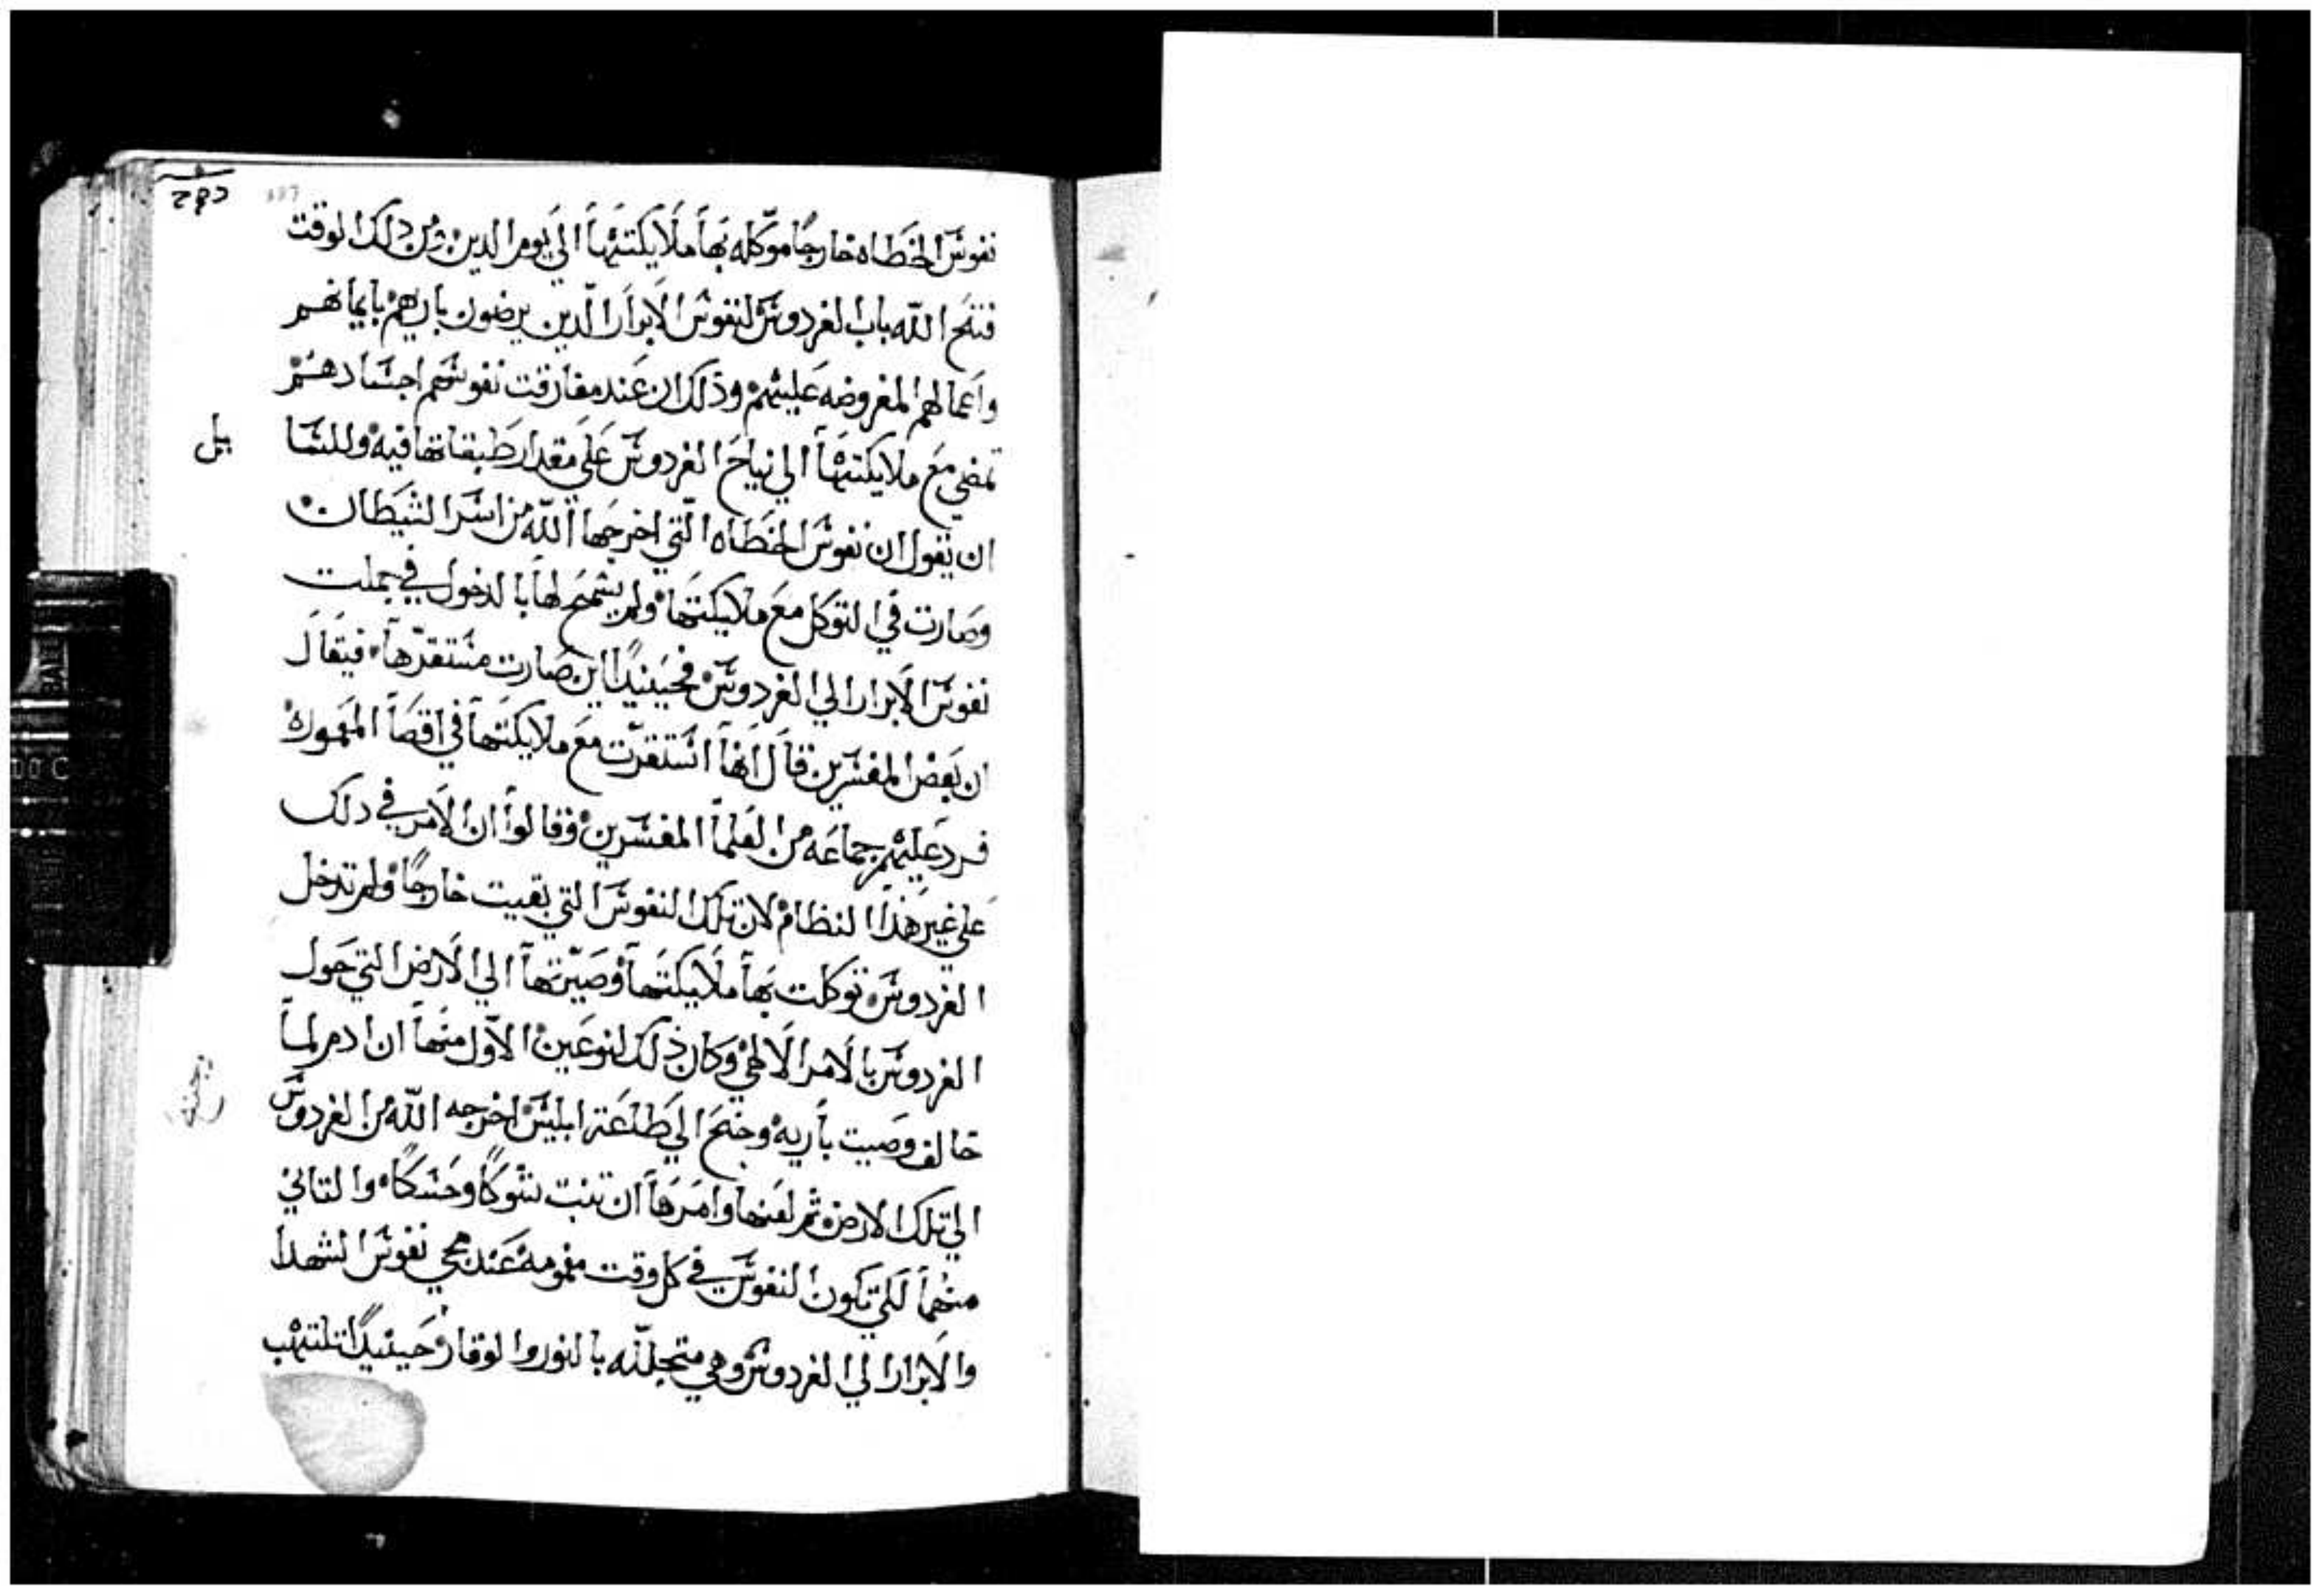 نفوس الخطاه خارجًا موكله بها ملايكتها الي يوم الدين ومن دلك الوقت
فتح الله باب الفردوس لنفوس الابرار الدين يرضون باريهم بايمانهم
واعمالهم المفروضه عليهم ودلك ان عند مفارقت نفوسهم اجسادهم
تمضي مع ملايكتها الي نياح الفردوس علي مقدار طبقاتها فيه وللسا
يل
ان يقول ان نفوس الخطاه التي اخرجها الله من اسر الشيطان
وصارت في التوكل مع ملايكتها ولم يسمح لها بالدخول في جملت
نفوس الابرار الي الفردوس فحينيدًا اين صارت مستقرها فيقال
ان بعض المفسرين قال انها استقرت مع ملايكتها في اقصا المعموره
فرد عليهم جماعه من العلما المفسرين وقالوا ان الامر في دلك
علي غير هدا النظام لان تلك النفوس التي بقيت خارجًا ولم تدخل
الفردوس توكلت بها ملايكتها وصيرتها الي الارض التي حول
الفردوس بالامر الالهي وكان ذلك لنوعين الاول منها ان ادم لما
خالف وصيت باريه وجنح الي طاعة ابليس اخرجه الله من الفردوس
الي تلك الارض ثم لعنها وامرها ان تنبت شوكًا وحسكًا والتاني
منهما لكي تكون النفوس في كل وقت مغمومه عند مجي نفوس الشهدا
والابرار الي الفردوس وهي متجلله بالنور والوقار وحينيدًا تلتهب